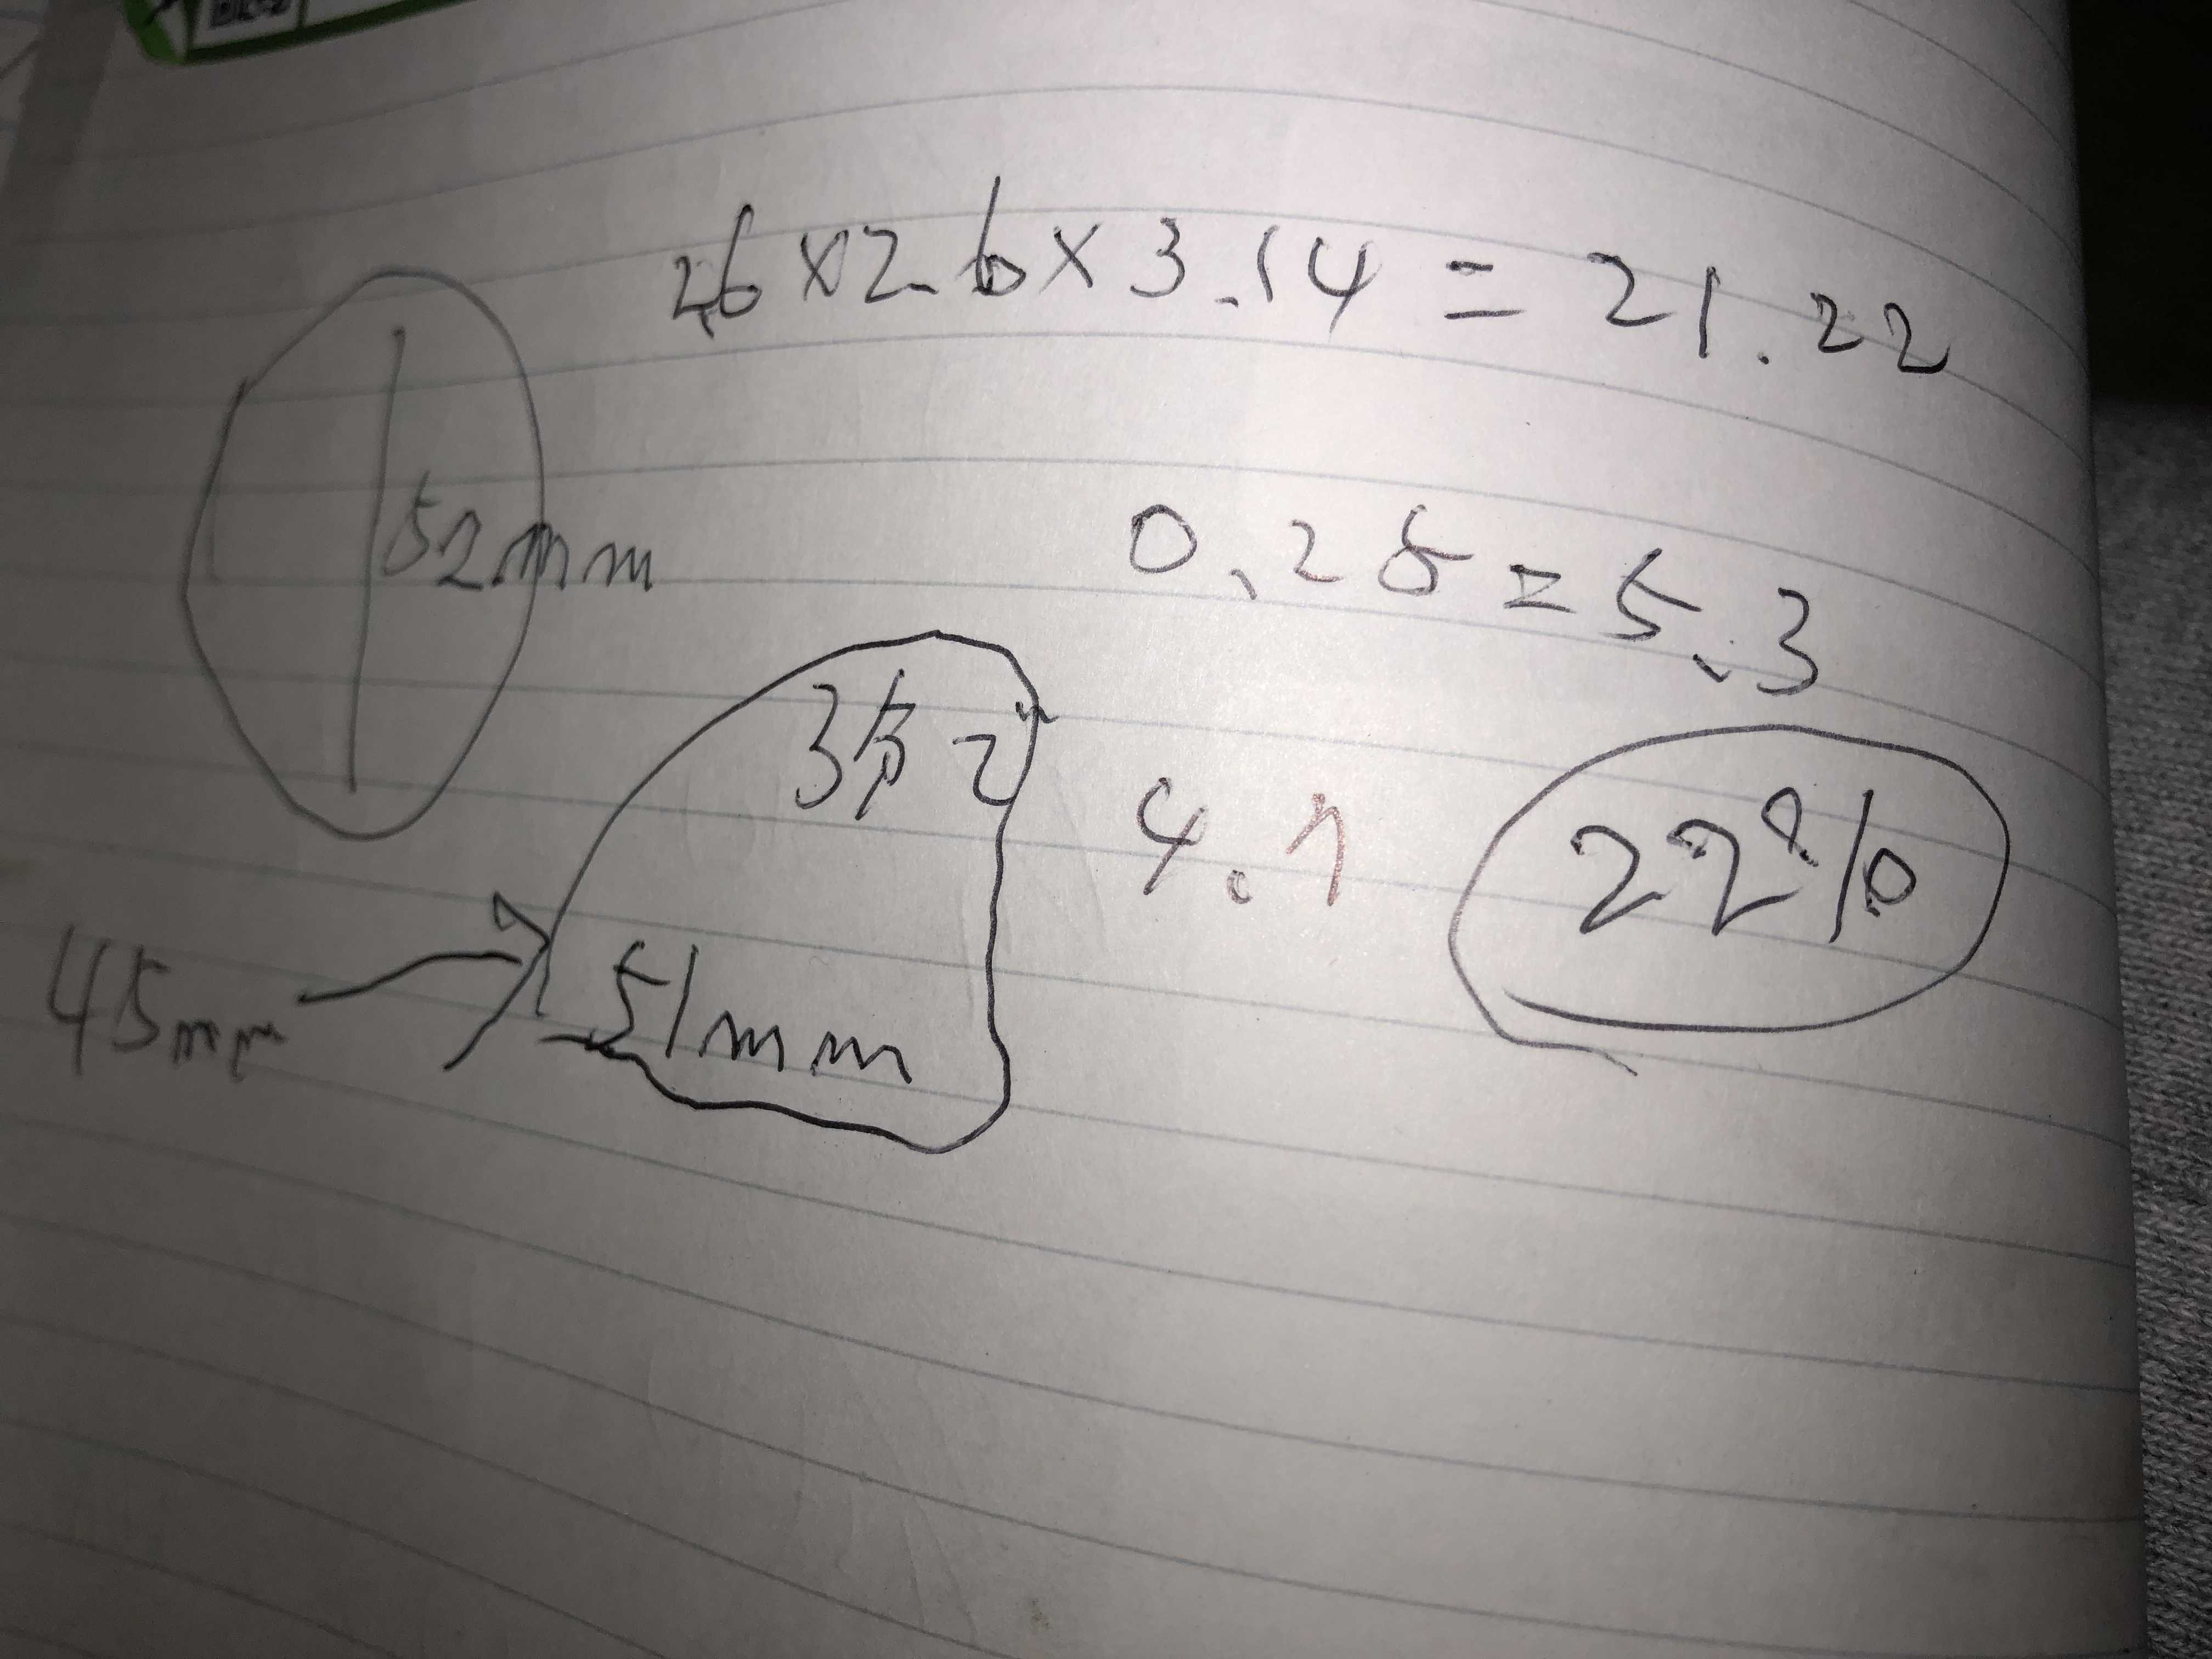 2.6×2.6×3.14=21.22
52mm
0.25=5.3
4.7
22%
45mm
51mm